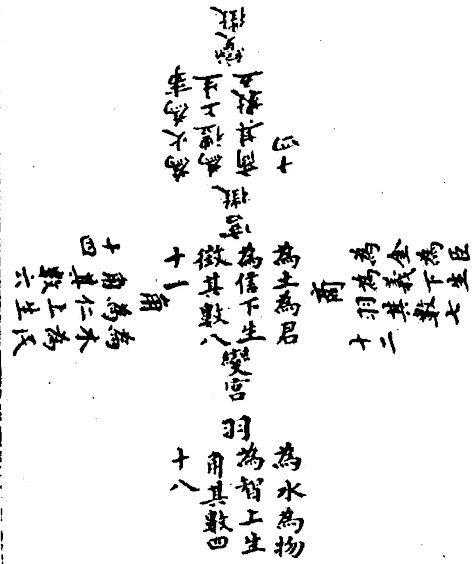 變徵
徵
為火為事
為禮上生
商其數五
十四
宮
為土為君
為信下生
徵其數八
十一
商
為金為臣
為義下生
羽其數七
十二
角
為木為民
為仁上生
角其數六
十四
變宮
羽
為水為物
為智上生
角其數四
十八